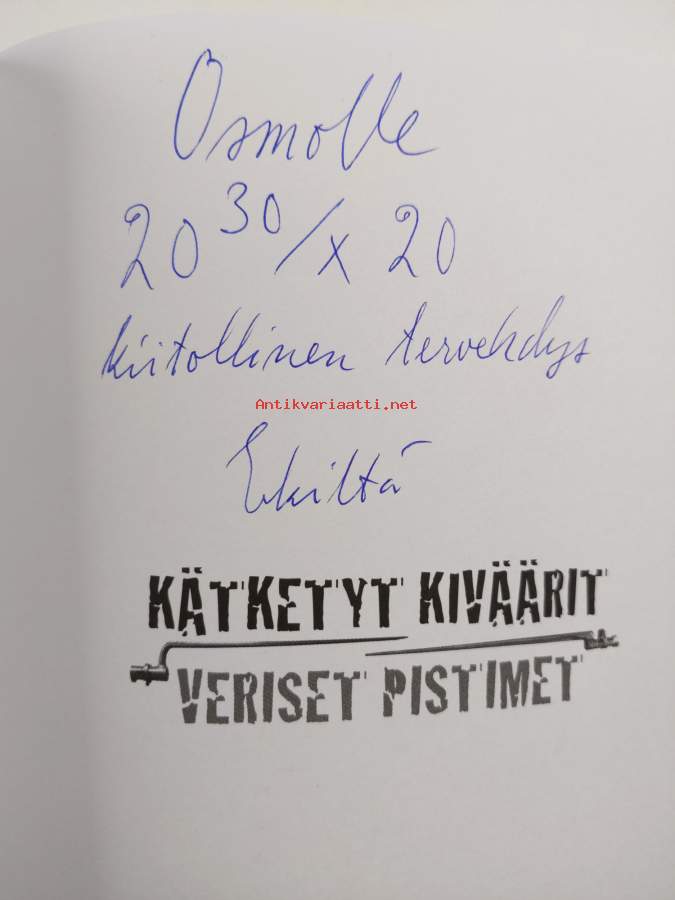 Osmolle
20 30/x 20
kiitollinen tervehdys
Antikvariaatti.net
Ekiltä
KÄTKETYT KIVÄÄRIT
VERISET PISTIMET